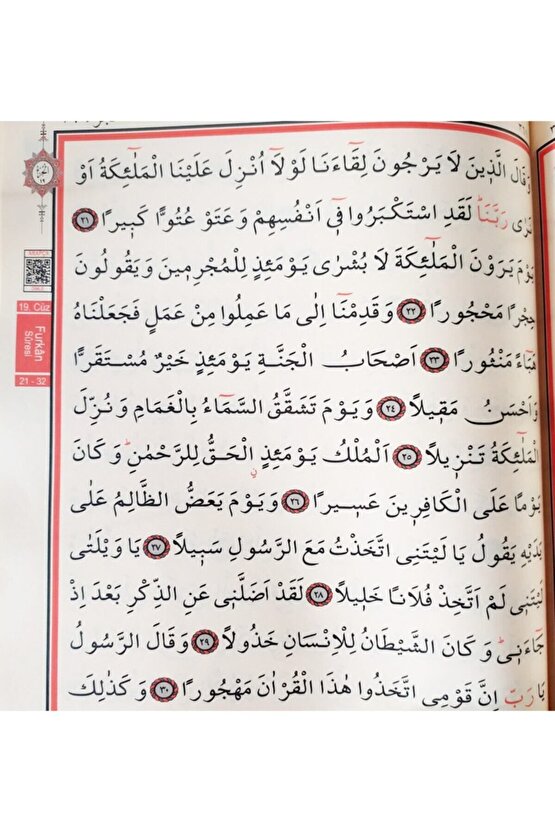 وَقَالَ الَّذٖينَ لَا يَرْجُونَ لِقَٓاءَنَا لَوْلَٓا اُنْزِلَ عَلَيْنَا الْمَلٰٓئِكَةُ اَوْ
نَرٰى رَبَّنَاؕ لَقَدِ اسْتَكْبَرُوا فٖٓي اَنْفُسِهِمْ وَعَتَوْ عُتُوًّا كَبٖيرًا ﴿٢١﴾
يَوْمَ يَرَوْنَ الْمَلٰٓئِكَةَ لَا بُشْرٰى يَوْمَئِذٍ لِلْمُجْرِمٖينَ وَيَقُولُونَ
حِجْرًا مَحْجُورًا ﴿٢٢﴾ وَقَدِمْنَٓا اِلٰى مَا عَمِلُوا مِنْ عَمَلٍ فَجَعَلْنَاهُ
هَبَٓاءً مَنْثُورًا ﴿٢٣﴾ اَصْحَابُ الْجَنَّةِ يَوْمَئِذٍ خَيْرٌ مُسْتَقَرًّا
وَاَحْسَنُ مَقٖيلًا ﴿٢٤﴾ وَيَوْمَ تَشَقَّقُ السَّمَٓاءُ بِالْغَمَامِ وَنُزِّلَ
الْمَلٰٓئِكَةُ تَنْزٖيلًا ﴿٢٥﴾ اَلْمُلْكُ يَوْمَئِذٍ الْحَقُّ لِلرَّحْمٰنِؕ وَكَانَ
يَوْمًا عَلَى الْكَافِرٖينَ عَسٖيرًا ﴿٢٦﴾ وَيَوْمَ يَعَضُّ الظَّالِمُ عَلٰى
يَدَيْهِ يَقُولُ يَا لَيْتَنِي اتَّخَذْتُ مَعَ الرَّسُولِ سَبٖيلًا ﴿٢٧﴾ يَا وَيْلَتٰى
لَيْتَنٖي لَمْ اَتَّخِذْ فُلَانًا خَلٖيلًا ﴿٢٨﴾ لَقَدْ اَضَلَّنٖي عَنِ الذِّكْرِ بَعْدَ اِذْ
جَٓاءَنٖيؕ وَكَانَ الشَّيْطَانُ لِلْاِنْسَانِ خَذُولًا ﴿٢٩﴾ وَقَالَ الرَّسُولُ
يَا رَبِّ اِنَّ قَوْمِي اتَّخَذُوا هٰذَا الْقُرْاٰنَ مَهْجُورًا ﴿٣٠﴾ وَكَذٰلِكَ
19. Cüz
Furkân
Sûresi
21 - 32